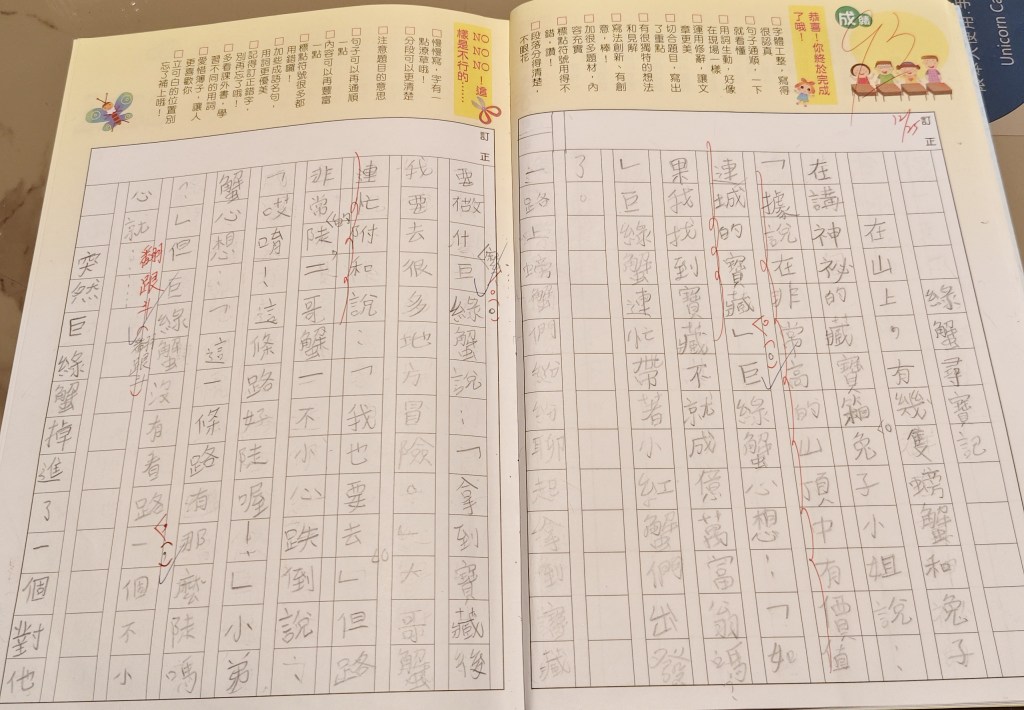 成績
93
恭喜！你終於完成了哦！
□字體工整，寫得很認真
□句子通順，一下就看懂
□描寫生動，好像在現場一樣
□運用修辭，讓文章更優美
□切合題目，寫出了重點
□有很獨特的想法和見解
□寫法創新、有創意，棒！
□加很多題材，內容充實
□標點符號用得不錯，讚！
□段落分得清楚，不眼花
訂正
12/25
綠蟹尋寶記
在山上，有幾隻螃蟹和兔子
在講神祕的藏寶箱兔子小姐說：
「據說在非常高的山頂中有價值
連城的寶藏」巨綠蟹心想：「如
果我找到寶藏不就成億萬富翁嗎…
」巨綠蟹連忙帶著小紅蟹們出發
了。
一路上螃蟹們紛紛聊起拿到寶藏
NO NO NO！這樣是不行的……
□慢慢寫，字有一點潦草哦！
□分段可以更清楚
□注意題目的意思
□句子可以再通順一點
□內容可以再豐富一點
□標點符號很多都用錯囉！
□加些成語名句，用詞更優美
□記得訂正錯字，別再忘了哦！
□多看課外書，學習不同的用詞
□愛惜簿子，讓人更喜歡你
□立可白的位置別忘了補上哦！
訂正
要做什巨綠蟹說：「拿到寶藏後
我要去很多地方冒險。」大哥蟹
連忙附和說：「我也要去」但路
非常陡二哥蟹一不小心跌倒說：
「哎唷！這條路好陡喔！」小弟
蟹心想：「這一條路有那麼陡嗎
？」但巨綠蟹沒有看路一個不小
心就……翻跟斗（翻跟斗）
突然巨綠蟹掉進了一個對他
Unicorn Ca